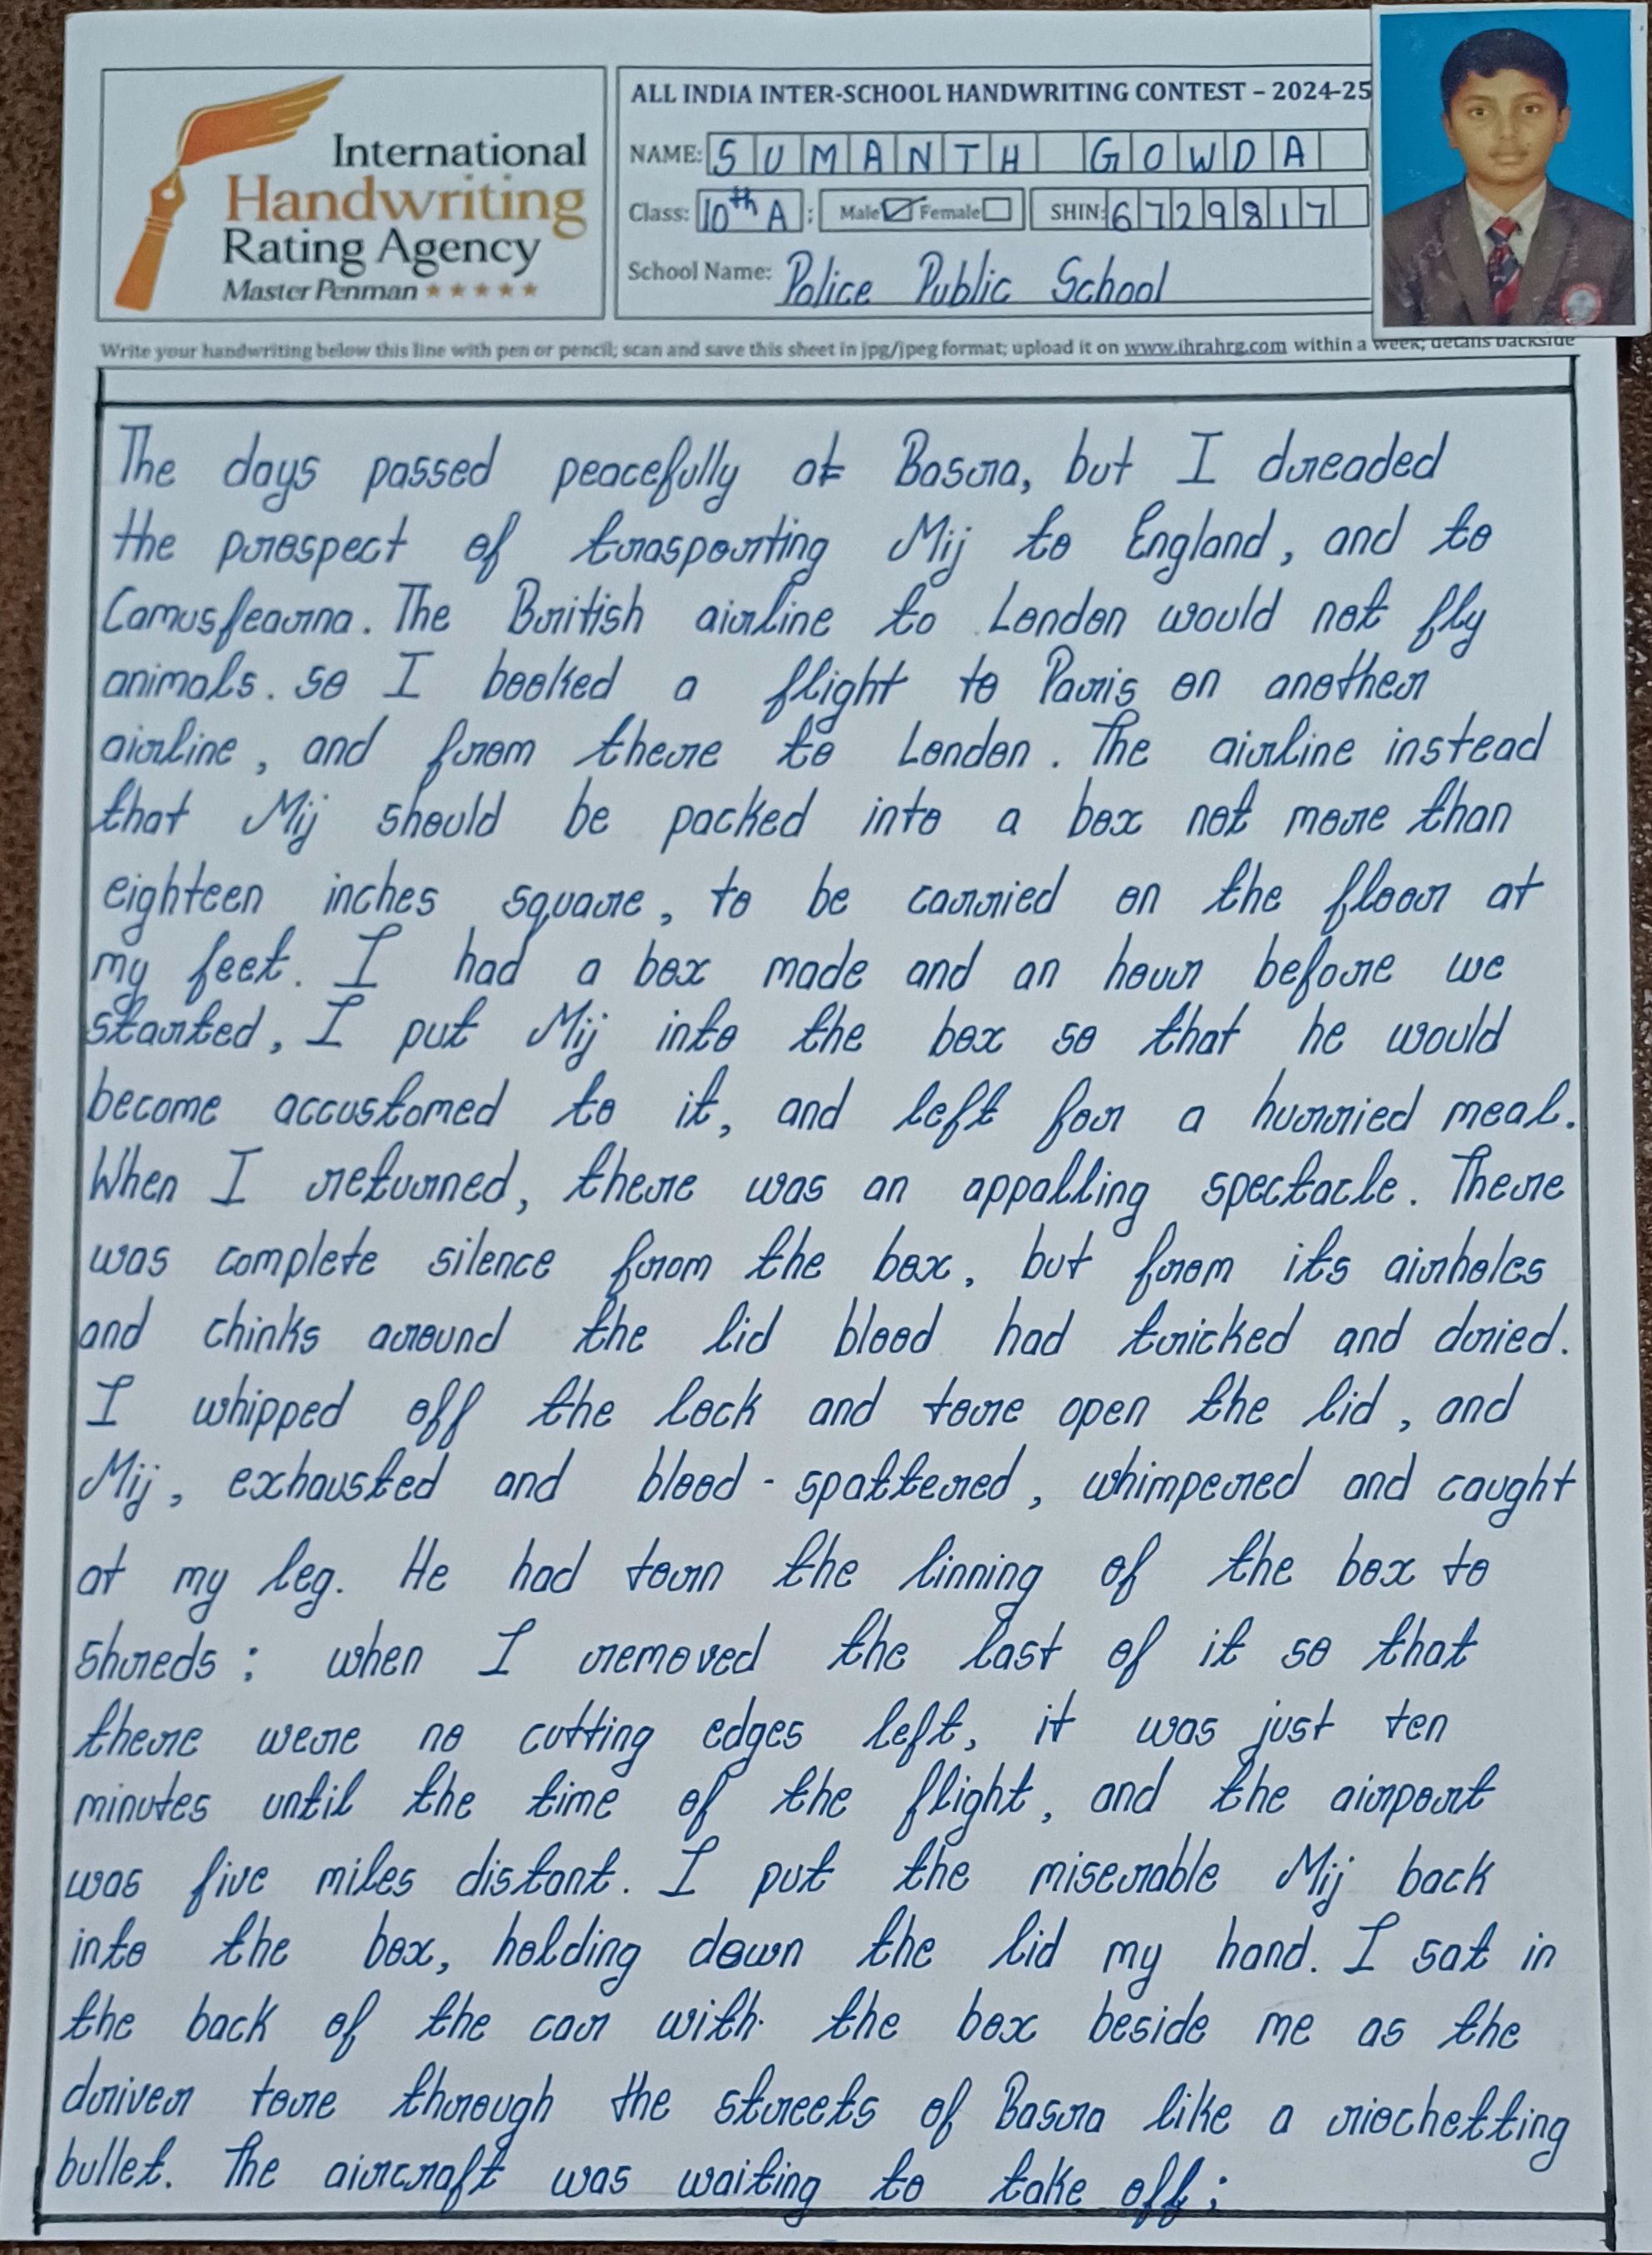 International
Handwriting
Rating Agency
Master Penman
ALL INDIA INTER-SCHOOL HANDWRITING CONTEST – 2024-25
NAME: SUMANTH GOWDA
Class: 10th A ; Male Female SHIN: 6729817
School Name: Police Public School
Write your handwriting below this line with pen or pencil; scan and save this sheet in jpg/jpeg format; upload it on www.ihrahrg.com within a week; details backside
The days passed peacefully at Basra, but I dreaded
the prospect of trasporting Mij to England, and to
Camusfearna. The British airline to London would not fly
animals. so I booked a flight to Paris on another
airline, and from there to London. The airline instead
that Mij should be packed into a box not more than
eighteen inches square, to be carried on the floor at
my feet. I had a box made and an hour before we
started, I put Mij into the box so that he would
become accustomed to it, and left for a hurried meal.
When I returned, there was an appalling spectacle. There
was complete silence from the box, but from its airholes
and chinks around the lid blood had tricked and dried.
I whipped off the lock and tore open the lid, and
Mij, exhausted and blood - spattered, whimpered and caught
at my leg. He had torn the linning of the box to
shreds; when I removed the last of it so that
there were no cutting edges left, it was just ten
minutes until the time of the flight, and the airport
was five miles distant. I put the miserable Mij back
into the box, holding down the lid my hand. I sat in
the back of the car with the box beside me as the
driver tore through the streets of Basra like a riochetting
bullet. The aircraft was waiting to take off;